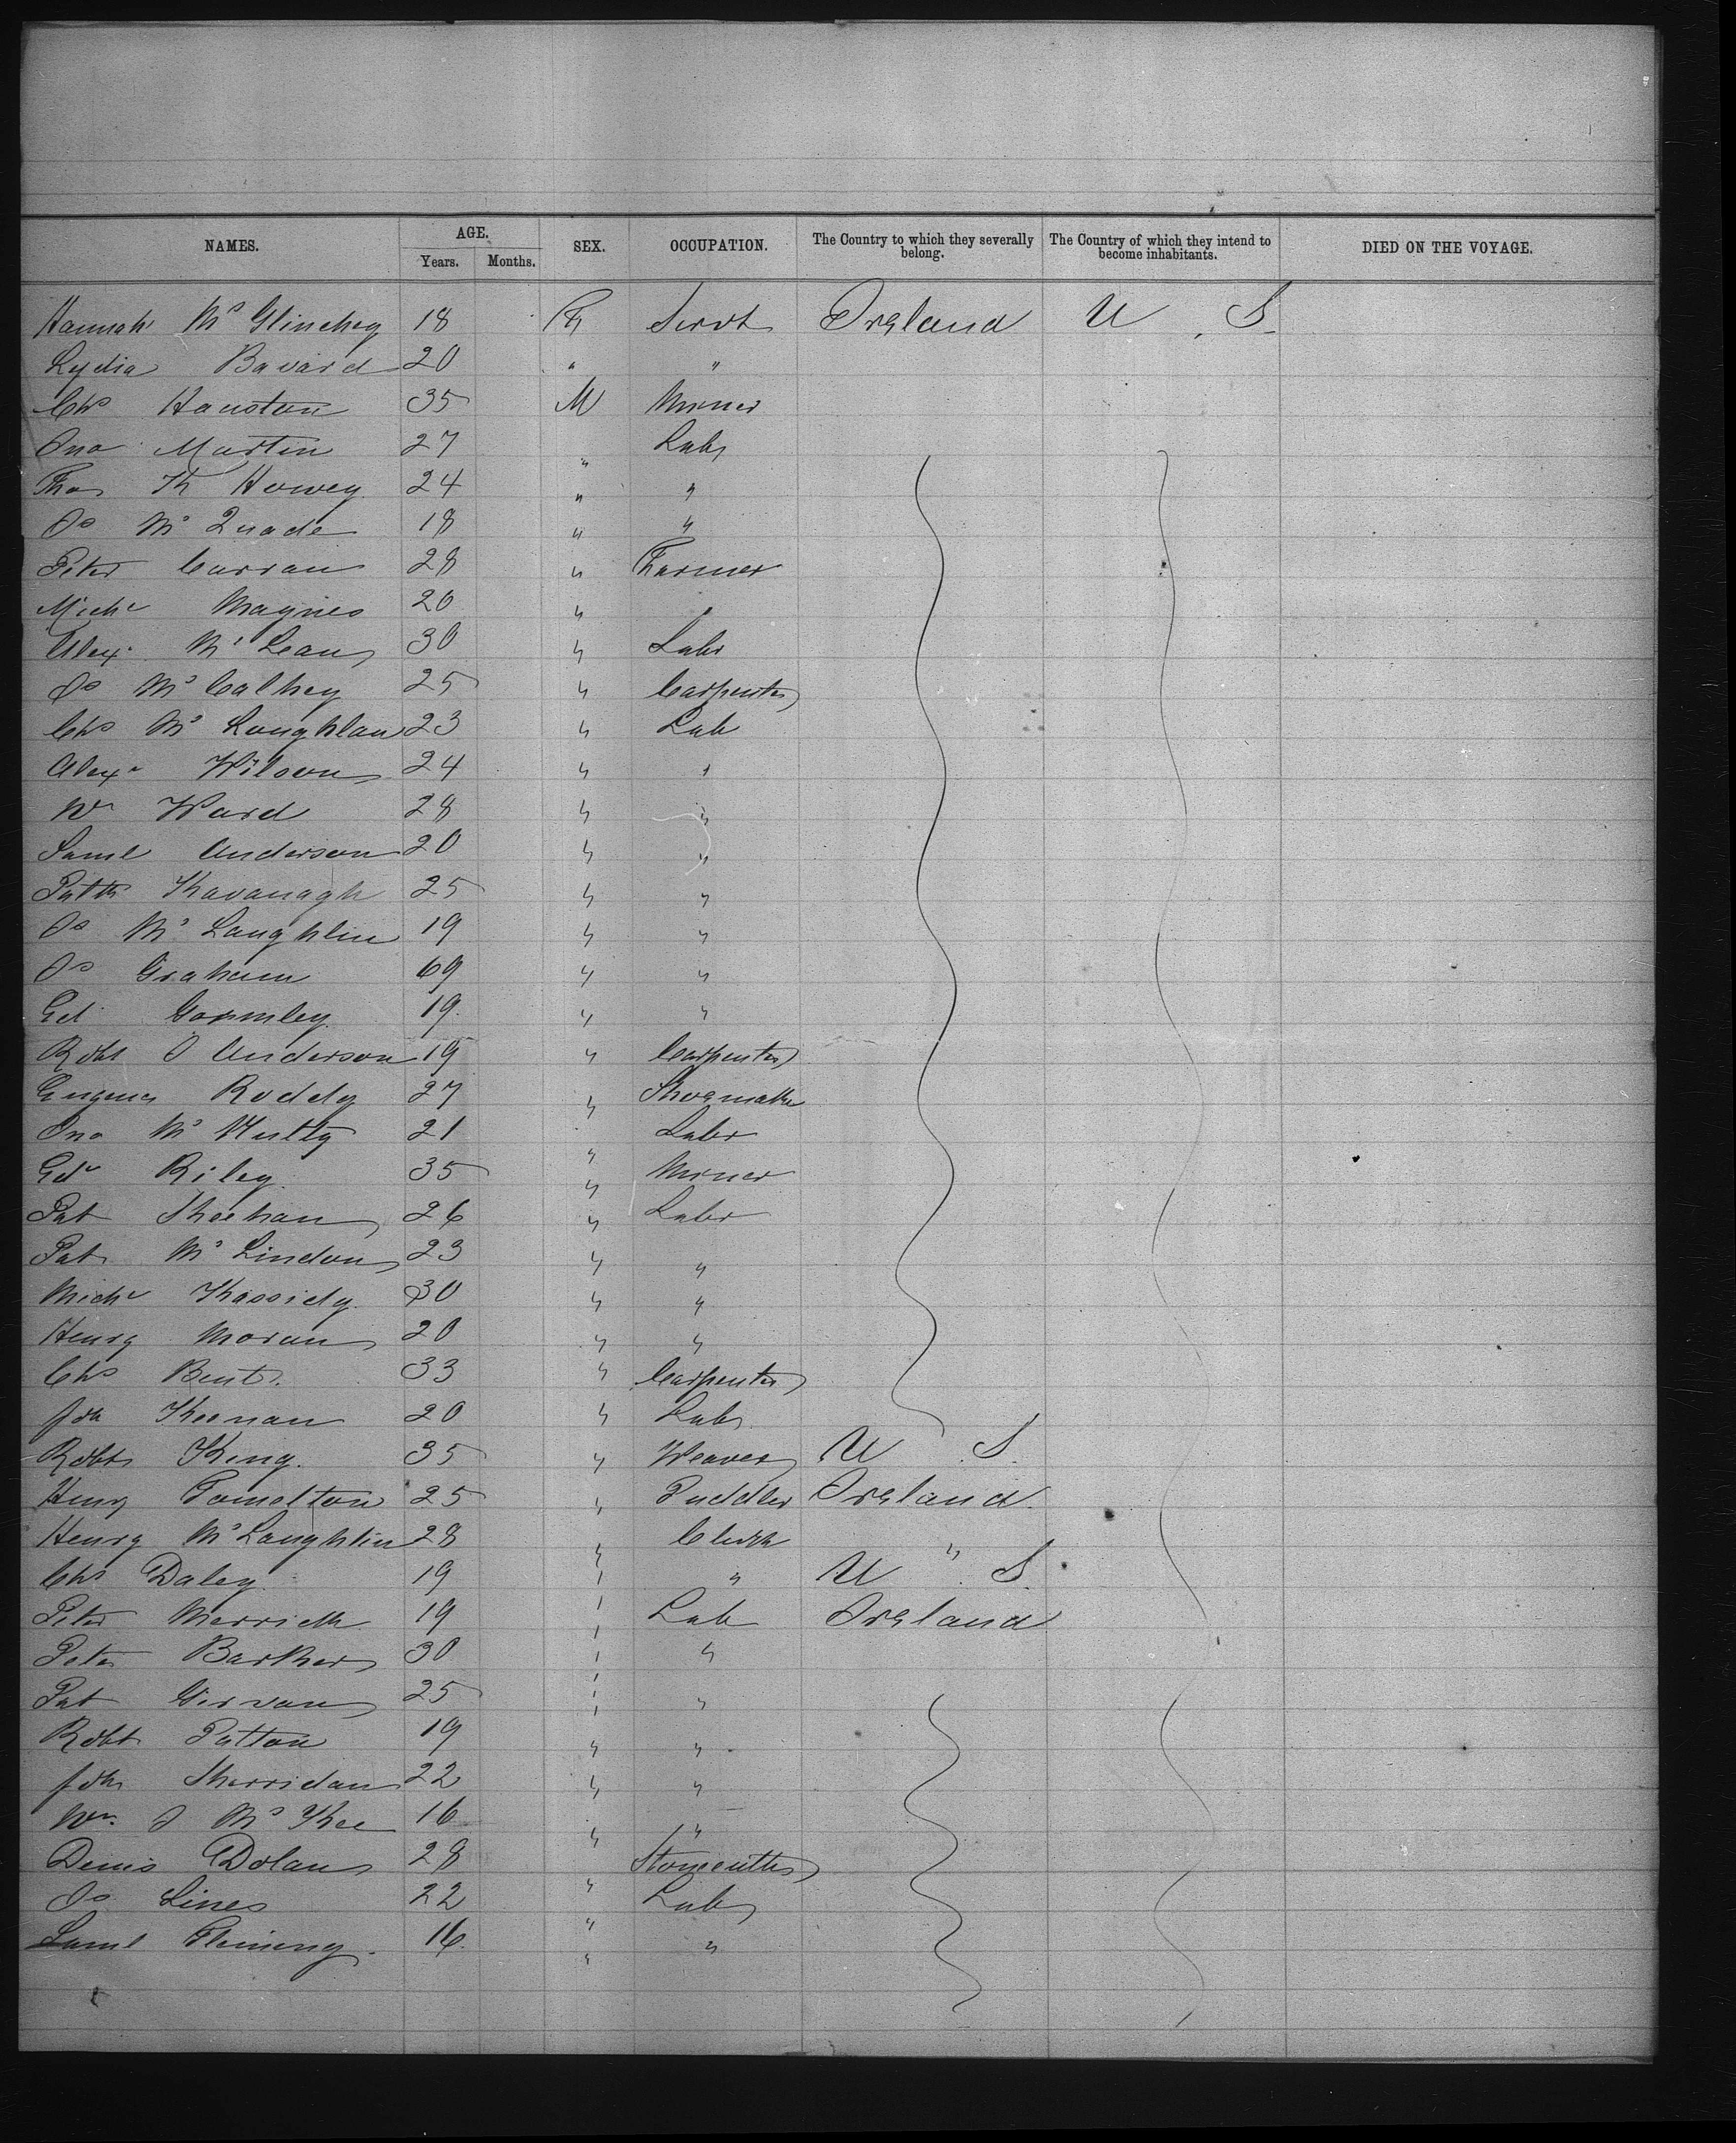 NAMES. AGE. SEX. OCCUPATION. The Country to which they severally belong. The Country of which they intend to become inhabitants. DIED ON THE VOYAGE.
Years. Months.
Hannah Mc Glinchey 18 F Servt Ireland U. S.
Lydia Bavard 20 " "
Chs Houston 35 M Miner
Jno Martin 27 " Labr
Thos K Howey 24 " "
Js Mc Quade 18 " "
Peter Curran 28 " Farmer
Michl Maynes 20 " "
Alex Mc Lean 30 " Labr
Js Mc Calhey 25 " Carpenter
Chs Mc Loughlan 23 " Lab
Alexr Wilson 24 " "
Wm Ward 28 " "
Saml Anderson 20 " "
Patk Kavanagh 25 " "
Js Mc Laughlin 19 " "
Js Graham 69 " "
Ed Gormley 19 " "
Robt J Anderson 19 " Carpenter
Eugene Roddy 27 " Shoemaker
Jno Mc Nulty 21 " Labr
Edw Riley 35 " Miner
Pat Sheehan 26 " Labr
Pat Mc Lindon 23 " "
Michl Kassidy 30 " "
Henry Moran 20 " "
Chs Bent 33 " Carpenter
Joh Keenan 20 " Labr
Robt King 35 " Weaver U S.
Henry Tomelton 25 " Puddler Ireland
Henry Mc Laughlin 28 " Clerk "
Chs Daley 19 " " U S.
Peter Merrick 19 " Lab Ireland
Peter Barker 30 " "
Pat Girvan 25 " "
Robt Patton 19 " "
Joh Sherridan 22 " "
Wm J Mc Kee 16 " "
Denis Dolan 28 " Stonecutter
Js Lines 22 " Labr
Saml Fleming 16 " "